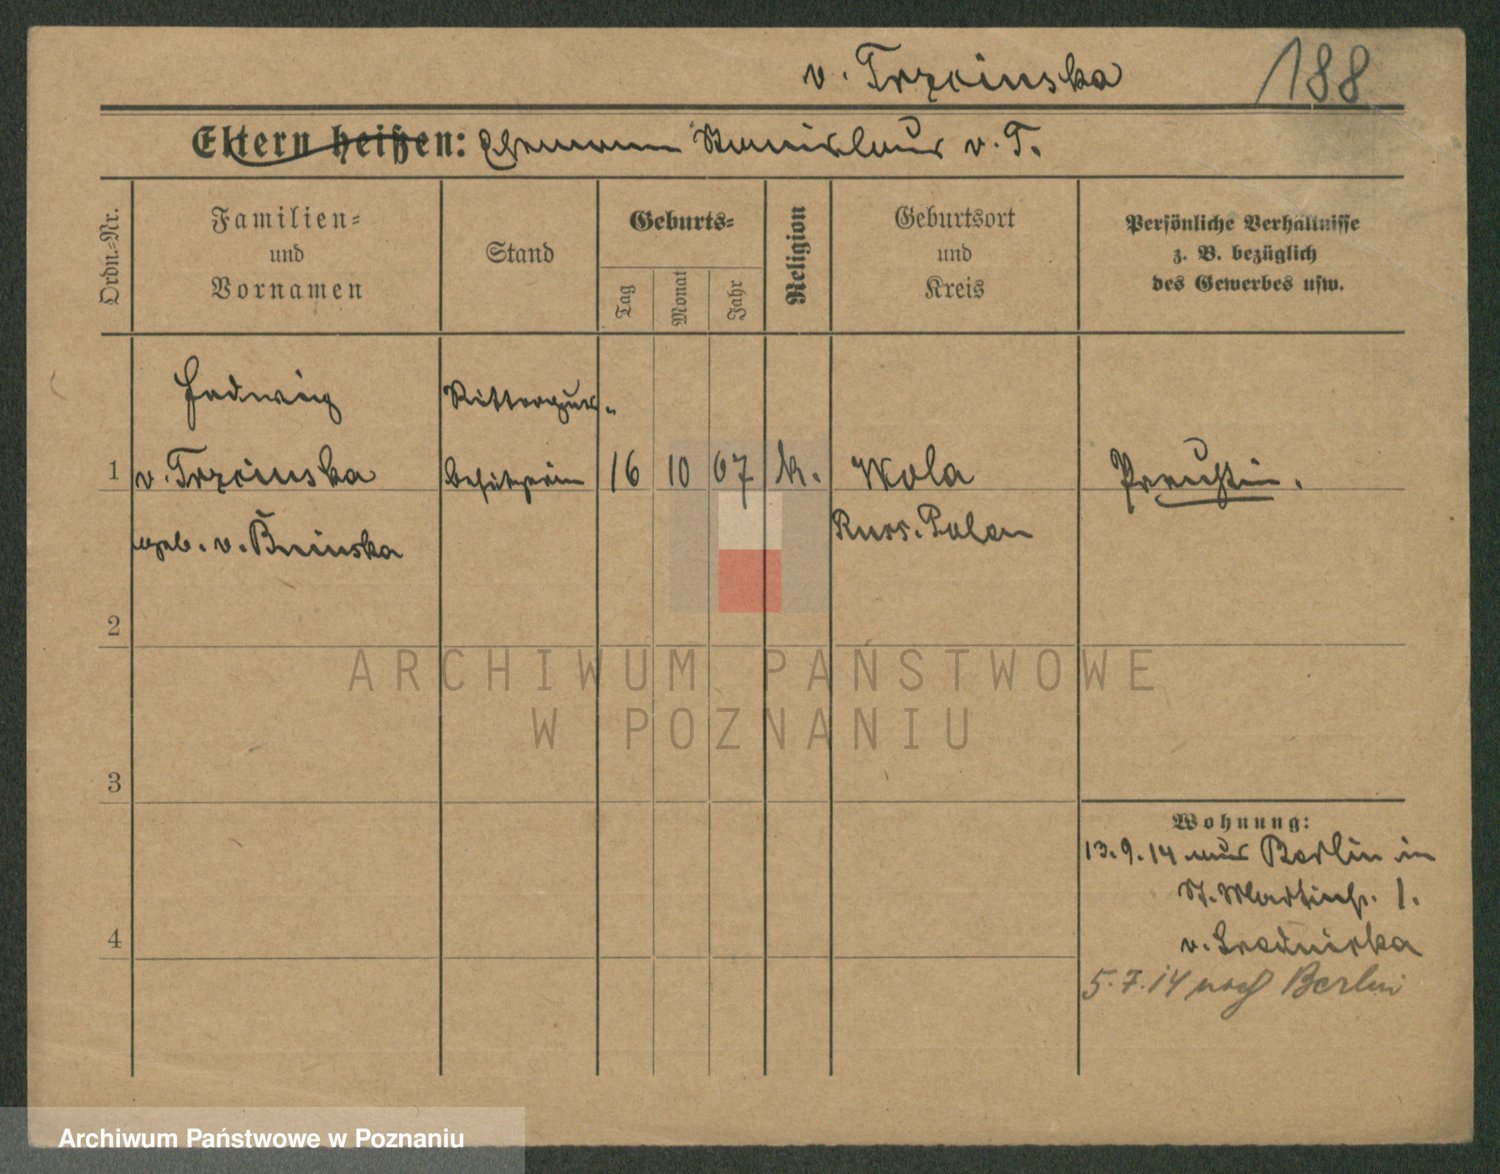 v. Trzcinska
188
Eltern heißen: Ehemann Stanislaus v. T.
Ordn.-Nr.
Familien-
und
Vornamen
Stand
Geburts-
Tag
Monat
Jahr
Religion
Geburtsort
und
Kreis
Persönliche Verhältnisse
z. B. bezüglich
des Gewerbes usw.
Hedwig
Ritterguts-
1
v. Trzcinska
besitzerin
16
10
67
k.
Wola
Preußin.
geb. v. Bninska
Russ. Polen
2
ARCHIWUM PAŃSTWOWE
W POZNANIU
3
Wohnung:
13.9.14 aus Berlin in
St. Martinstr. 1.
4
v.
5.7.14 nach Berlin
Archiwum Państwowe w Poznaniu